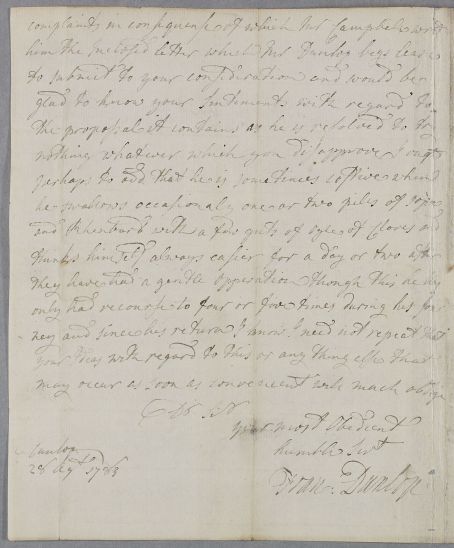 complaints in consequense of which Mr Campbell wrote
him the Enclosed letter which Mr Dunlop begs leave
to submitt to your consideration and would be
glad to know your Sentements with regard to
the proposal it contains as he is resolved to try
nothing whatever which you disapprove I ought
perhaps to add that he is sometimes costive when
he swallows occasionaly one or two pills of
and Rheubarb with a few guts of Oyle of Cloves and
thinks himself always easier for a day or two after
they have had a gentle opperation though this he has
only had recourse to four or five times during his jour
ney and since his return I know I need not repeat that
your Ideas with regard to this or any thing else that
may occur as soon as convenient will much oblige
Dr Sir
your most obedient
humble Servt
Fran: Dunlop
28 Agt 1783